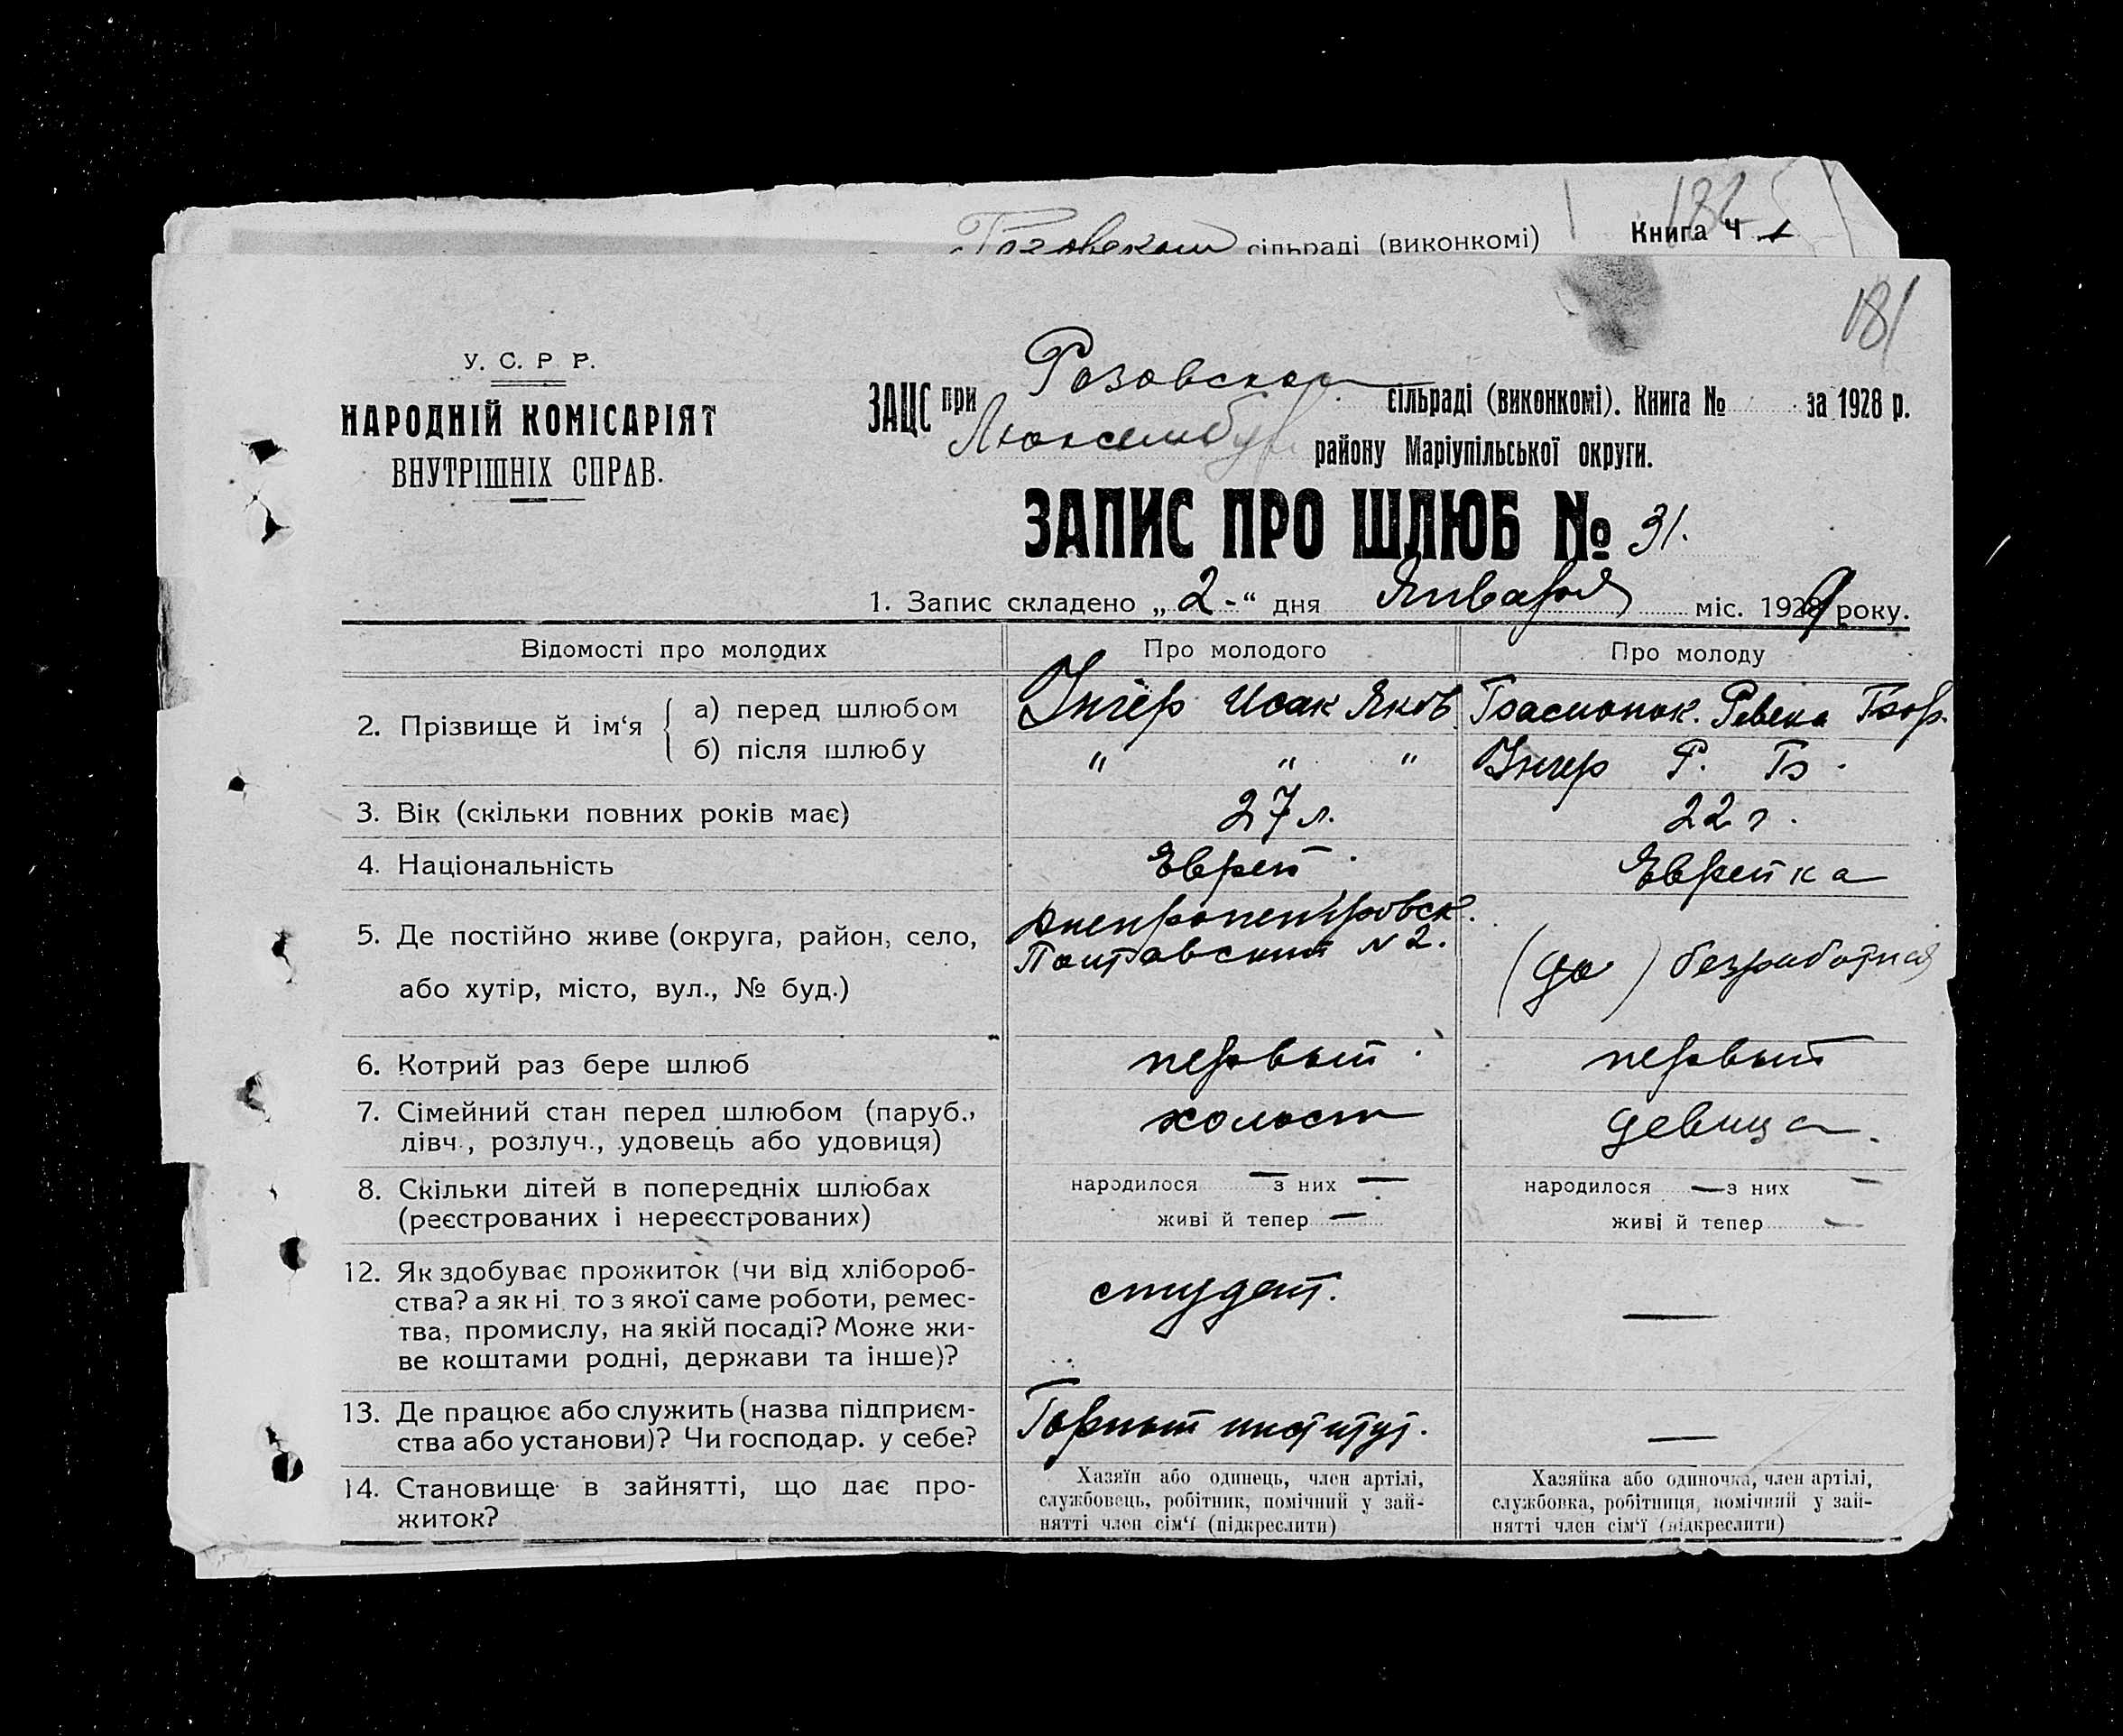 182
сільраді (виконкомі) Книга Ч 1
181
У. С. Р Р.
НАРОДНІЙ КОМІСАРІЯТ
ВНУТРІШНІХ СПРАВ.
ЗАЦС при Розовском сільраді (виконкомі). Книга № за 1928 р.
Люксембур району Маріупільської округи.
ЗАПИС ПРО ШЛЮБ № 31.
1. Запис складено „2-“ дня Января міс. 1929 року.
Відомості про молодих Про молодого Про молоду
2. Прізвище й ім‘я
а) перед шлюбом Унгер Исак Яков. Ревека
б) після шлюбу " " " Унгер Р. Б.
3. Вік (скільки повних років має) 27 л. 22 г.
4. Національність Еврей Еврейка
5. Де постійно живе (округа, район, село,
або хутір, місто, вул., № буд.)
Днепропетровск.
N 2.
(да) безработная
6. Котрий раз бере шлюб первый первый
7. Сімейний стан перед шлюбом (паруб.,
дівч., розлуч., удовець або удовиця)
холост девица.
8. Скільки дітей в попередніх шлюбах
(реєстрованих і нереєстрованих)
народилося — з них —
живі й тепер —
народилося — з них —
живі й тепер —
12. Як здобуває прожиток (чи від хлібороб-
ства? а як ні то з якої саме роботи, ремес-
тва, промислу, на якій посаді? Може жи-
ве коштами родні, держави та інше)?
студент. —
13. Де працює або служить (назва підприєм-
ства або установи)? Чи господар. у себе?
Горный институт. —
14. Становище в зайнятті, що дає про-
житок?
Хазяїн або одинець, член артілі,
службовець, робітник, помічний у зай-
нятті член сім‘ї (підкреслити)
Хазяйка або одиночка, член артілі,
службовка, робітниця, помічний у зай-
нятті член сім‘ї (підкреслити)